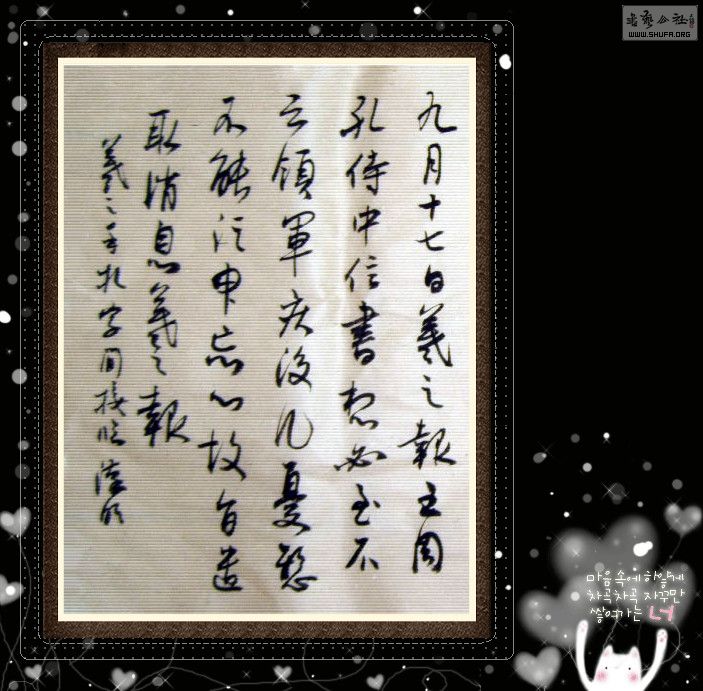 書藝公社
WWW.SHUFA.ORG
九月十七日羲之報且因
孔侍中信書想必至不
知領軍疾後問憂懸
不能須臾忘心故旨遣
取消息羲之報
羲之手札
마음속에 하얗게
차곡차곡 자꾸만
쌓여가는 너